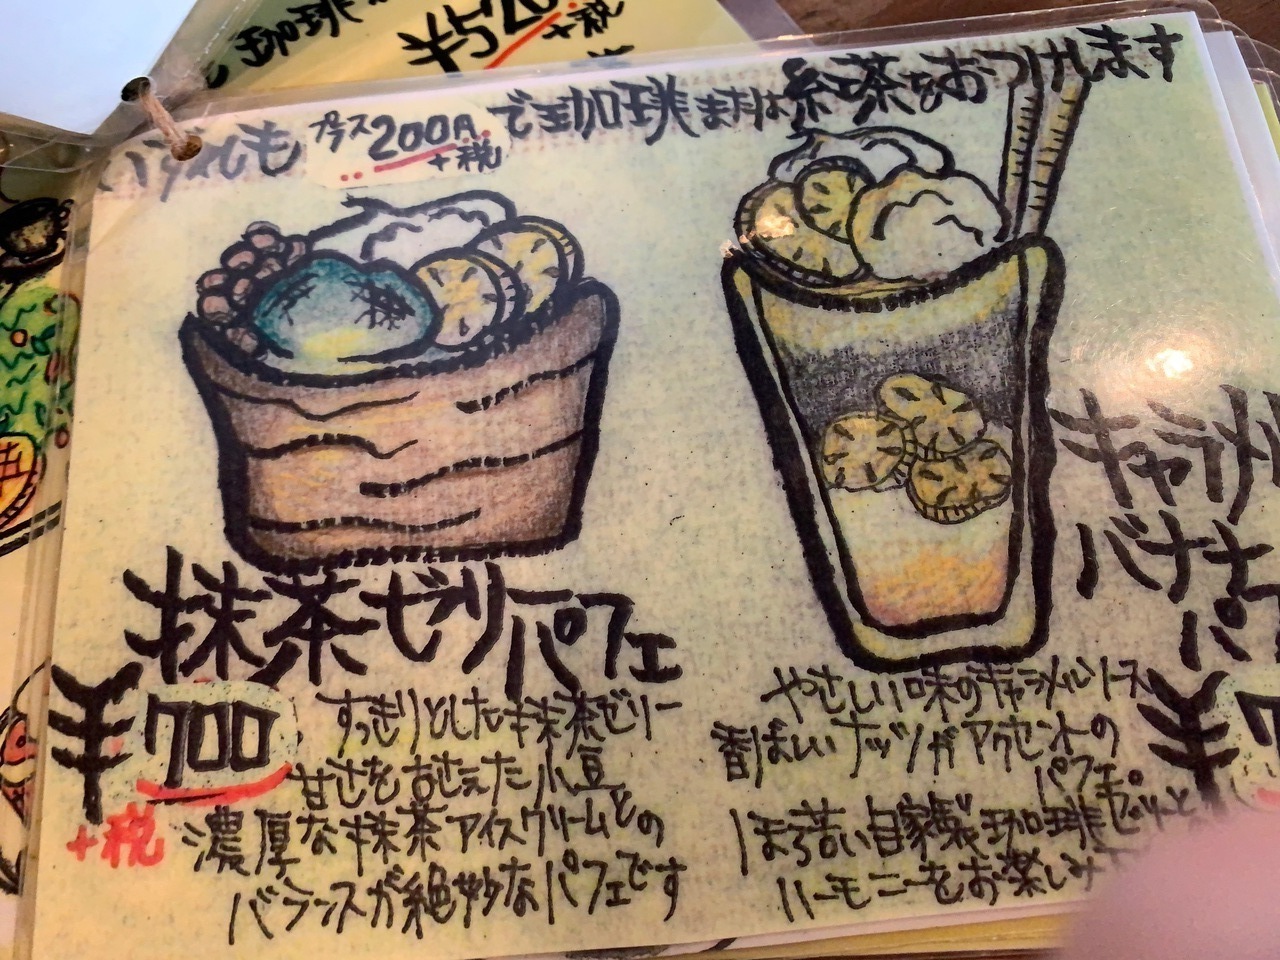 珈琲
¥520
+税
いずれも プラス200円 で珈琲または紅茶をおつけします
+税
抹茶ゼリーパフェ
¥700
+税
すっきりとした抹茶ゼリー
甘さをおさえた小豆
濃厚な抹茶アイスクリームとの
バランスが絶妙なパフェです
キャラメル
バナナ
パ
¥
やさしい味のキャラメルソース
香ばしいナッツがアクセントの
パフェ。
ほろ苦い自家製珈琲ゼリーと
ハーモニーをお楽しみ